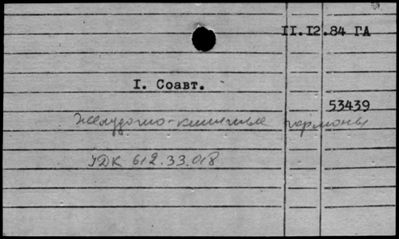 II.I2.84 ГА
I. Соавт.
53439
Желудочно-кишечные гормоны
УДК 612.33.018